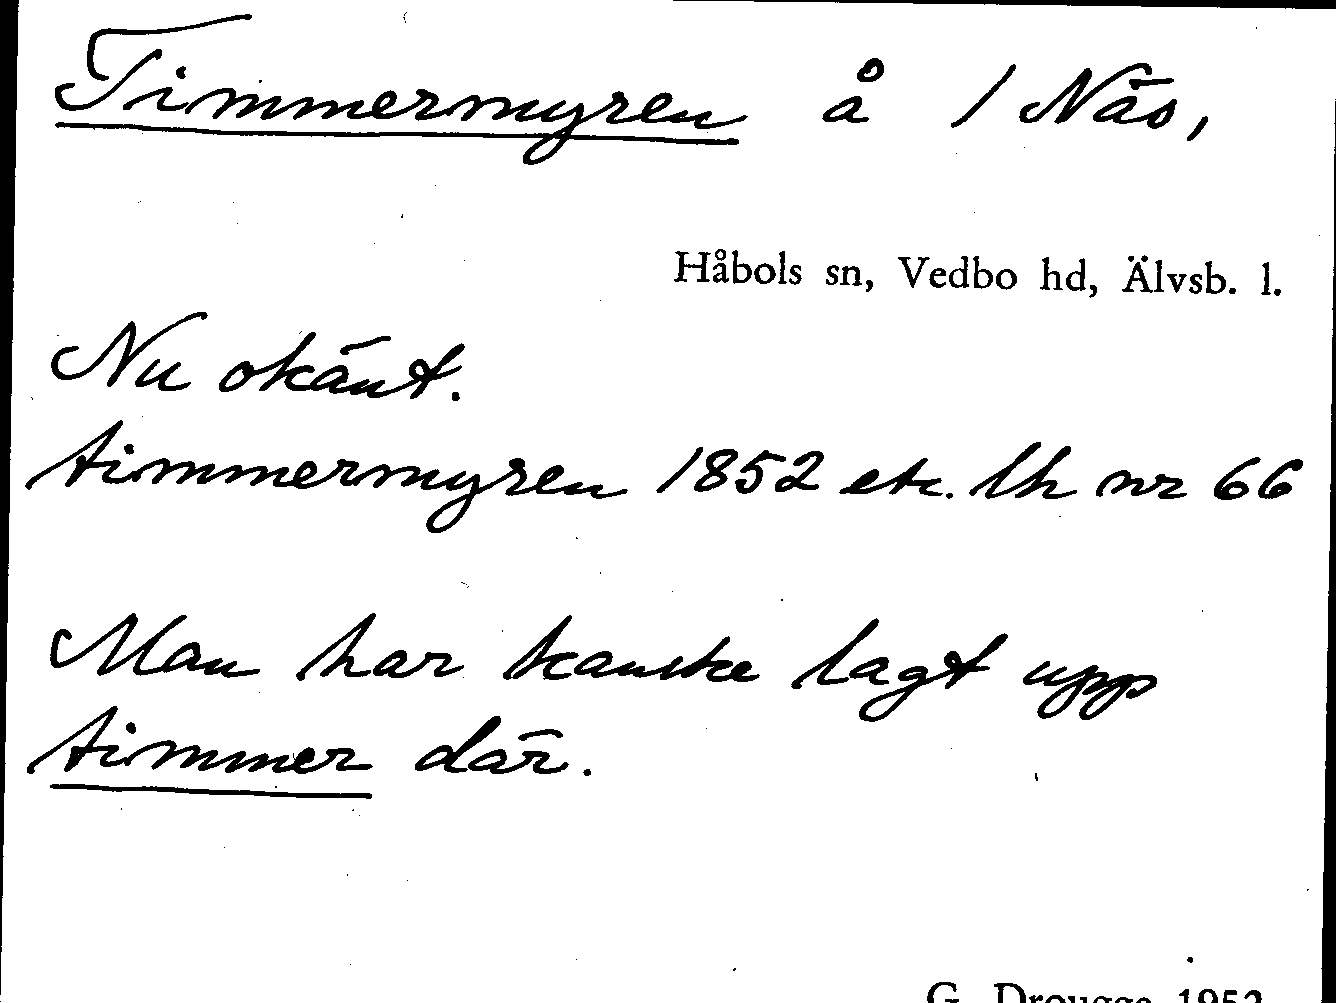 Timmermyren å 1 Näs,
Håbols sn, Vedbo hd, Älvsb. l.
Nu okänt.
timmermyren 1852 etc. lh nr 66
Man har kanske lagt upp
timmer där.
G. Drougge 1952